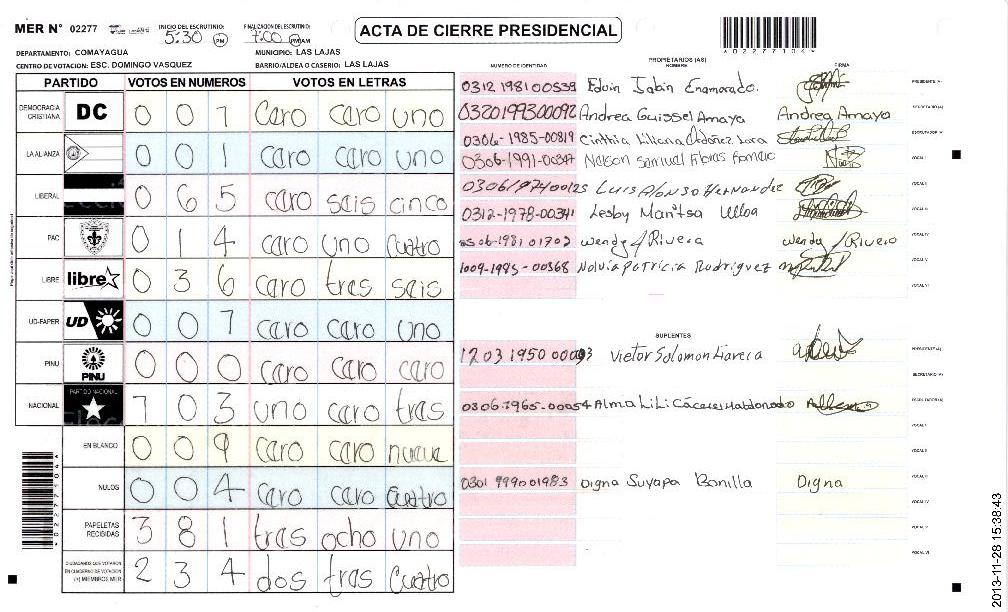 MER N° 02277 INICIO DEL ESCRUTINIO: 5:30 PM FINALIZACION DEL ESCRUTINIO: 7:00 PM AM
ACTA DE CIERRE PRESIDENCIAL
0227704
DEPARTAMENTO: COMAYAGUA MUNICIPIO: LAS LAJAS
CENTRO DE VOTACION: ESC. DOMINGO VASQUEZ BARRIO/ALDEA O CASERIO: LAS LAJAS
PARTIDO VOTOS EN NUMEROS VOTOS EN LETRAS
DEMOCRACIA CRISTIANA DC 0 0 1 caro caro uno
LA ALIANZA 0 0 1 caro caro uno
LIBERAL 0 6 5 caro seis cinco
PAC 0 1 4 caro uno cuatro
LIBRE libre 0 3 6 caro tres seis
UD-FAPER UD 0 0 1 caro caro uno
PINU PINU 0 0 0 caro caro caro
NACIONAL PARTIDO NACIONAL 1 0 3 uno caro tras
EN BLANCO 0 0 9 caro caro nueve
NULOS 0 0 4 caro caro cuatro
PAPELETAS RECIBIDAS 3 8 1 tras ocho uno
CIUDADANOS QUE VOTARON EN CUADERNO DE VOTACION (+) MIEMBROS MER 2 3 4 dos tras cuatro
NUMERO DE IDENTIDAD PROPIETARIOS (AS) NOMBRE FIRMA
0312 1981 00539 Edvin Jabin Enamorado. PRESIDENTE (A)
0320199300092 Andrea Guissel Amaya Andrea Amaya SECRETARIO (A)
0306-1985-00819 Cinthia Liliana Ordoñez Lara ESCRUTADOR (A)
0306-1991-00347 Nelson Samuel Flores VOCAL I
0306197400125 Luis Alonso Hernandez VOCAL II
0312-1978-00341 Lesby Maritsa Ulloa VOCAL III
1981 01702 wendy J Rivera wendy J Rivera VOCAL IV
1009-1985-00368 Nolvia Patricia Rodriguez VOCAL V
VOCAL VI
SUPLENTES
12 03 1950 00093 Victor Solomon PRESIDENTE (A)
SECRETARIO (A)
0306-1965-00054 Alma LiLi Cáceres Maldonado ESCRUTADOR (A)
VOCAL I
VOCAL II
0301 1999 01983 Digna Suyapa Bonilla Digna VOCAL III
VOCAL IV
VOCAL V
VOCAL VI
0227704
2013-11-28 15:38:43